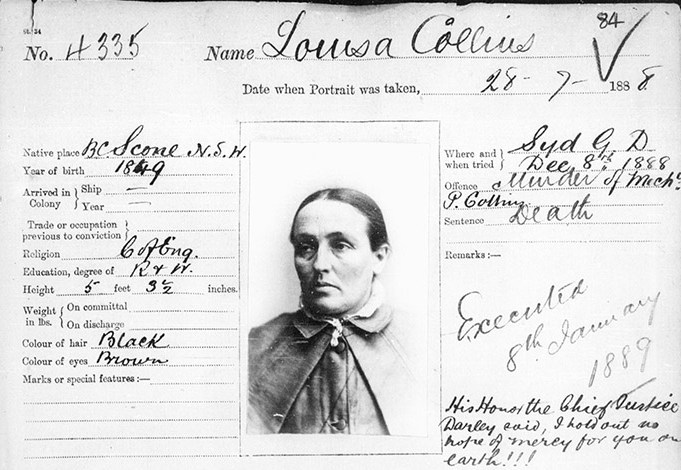 84
SL 24
No. 4335 Name Louisa Collins
Date when Portrait was taken, 28-7-1888
Native place BC. Scone N.S.W.
Year of birth 1849
Arrived in Colony } Ship —
Year —
Trade or occupation previous to conviction }
Religion C of Eng.
Education, degree of R & W.
Height 5 feet 3½ inches.
Weight in lbs. { On committal
On discharge
Colour of hair Black
Colour of eyes Brown
Marks or special features:—
Where and when tried } Syd G D
Dec 8th 1888
Offence Murder of Mich.
P. Collins
Sentence Death
Remarks:—
Executed
8th January
1889
His Honor the Chief Justice
Darley said, I hold out no
hope of mercy for you on
earth!!!